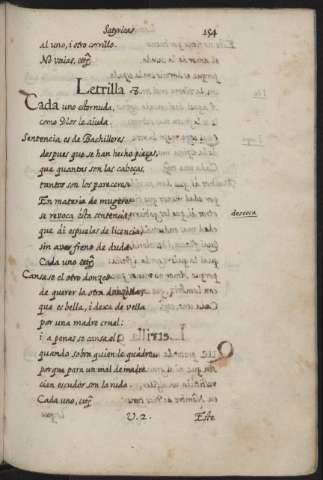 Satyricas. 154
al uno, i otro carrillo.
No vaias, etc.
Letrilla 3.
Cada uno estornuda,
como Dios le aiuda.
Sentencia es de Bachilleres
despues que se han hecho pieças,
que quantas son las cabeças,
tantos son los pareceres.
En materia de mugeres
se revoca esta sentencia,
que ai espuelas de licencia,
sin aver freno de duda.
Cada uno etc.
Cansase el otro donzel
de querer la otra donzella,
que es bella, i dexa de vella
por una madre cruel:
i a penas se cansa el
quando sobra quien le quadra
porque para un mal de madre
cien escudos son la ruda.
Cada uno, etc.
V. 2. Este